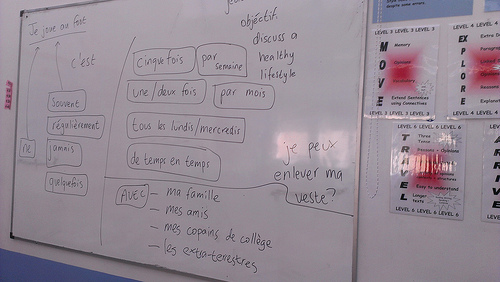 Je joue au foot
c'est
souvent
régulièrement
ne
jamais
quelquefois
objectif.
discuss a
healthy
lifestyle
cinque fois
par
semaine
une/deux fois
par mois
tous les lundis/mercredis
de temps en temps
je peux
enlever ma
veste?
AVEC
— ma famille
— mes amis
— mes copains de collège
— les extra-terrestres
LEVEL 3 LEVEL 3 LEVEL 3
MOVE
Memory
Opinions
Extend Sentences
using Connectives
LEVEL 3 LEVEL 3 LEVEL 3
LEVEL 4 LEVEL 4
EXPLORE
LEVEL 4 LEVEL 4
LEVEL 6 LEVEL 6 LEVEL 6
TRAVEL
Three
Tenses
Easy to understand
Longer
texts
LEVEL 6 LEVEL 6 LEVEL 6